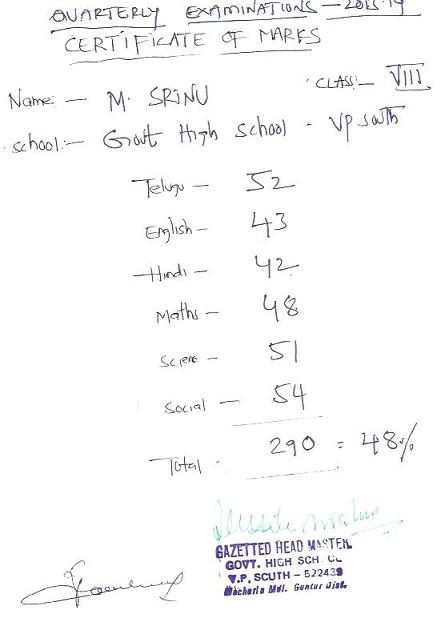 QUARTERLY EXAMINATIONS –
CERTIFICATE OF MARKS
CLASS:– VIII
Name:– M. SRINU
School:– Govt High School - VP South
Telugu – 52
English – 43
Hindi – 42
Maths – 48
Science – 51
Social – 54
Total - 290 = 48%
GAZETTED HEAD MASTER
GOVT. HIGH SCH
V.P. SOUTH –
Macherla Mdl. Guntur Dist.